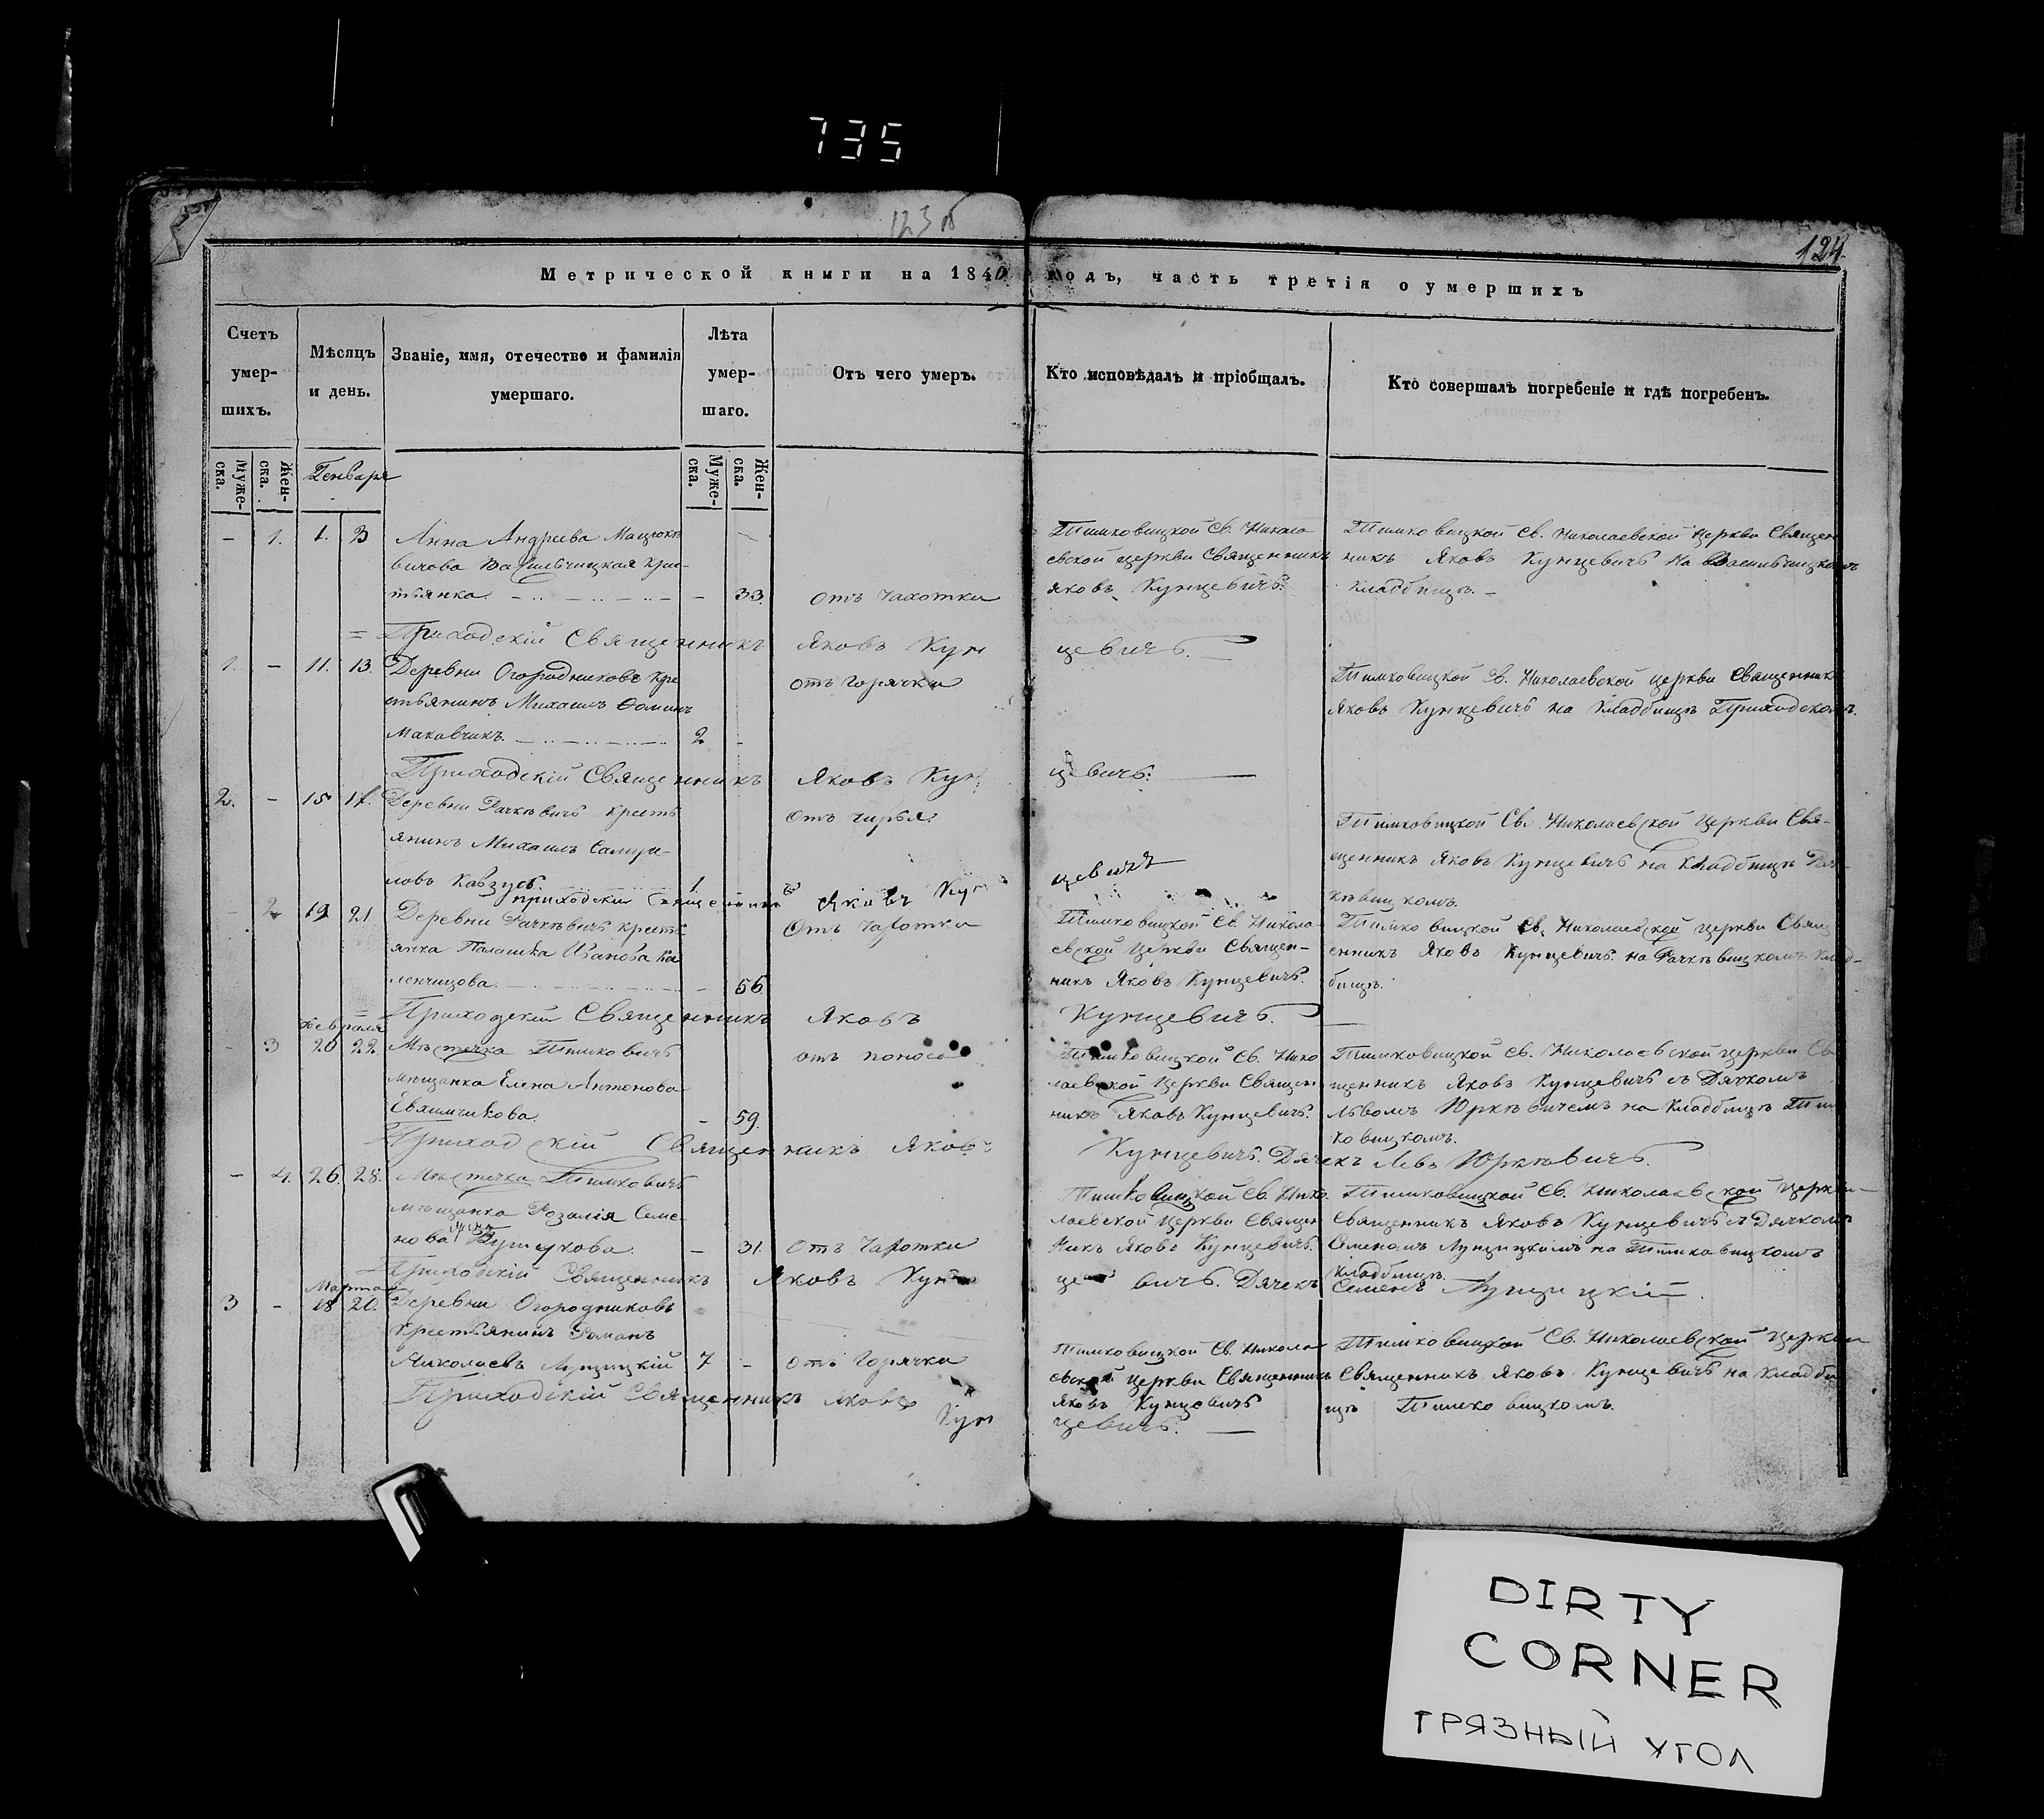 735
123 об
124.
Метрической книги на 1840 годъ, часть третія о умершихъ
Счетъ умер-шихъ.
Мѣсяцъ и день.
Званіе, имя, отечество и фамилія умершаго.
Лѣта умер-шаго.
Отъ чего умеръ.
Кто исповѣдалъ и пріобщалъ.
Кто совершалъ погребеніе и гдѣ погребенъ.
Муже-ска.
Жен-ска.
Генваря
Муже-ска.
Жен-ска.
– 1. 1. 3 Анна Андреева
вичова Васильчицкая крес-
тьянка – 33. отъ чахотки
Тимковицкой Св. Никола-
евской церкви Священникъ
Яковъ Кунцевичъ.
Тимковицкой Св. Николаевской Церкви Священ
никъ Яковъ Кунцевичъ на Васильчицкомъ
кладбищѣ. –
= Приходскій Священникъ Яковъ Кунцевичъ.
1. – 11. 13. Деревни Огородниковъ кре
стьянинъ Михаилъ Ѳоминъ
Маковчикъ. 2. –
отъ горячки
Тимковицкой Св. Николаевской церкви Священникъ
Яковъ Кунцевичъ на Кладбищѣ Приходскомъ.
Приходскій Священникъ Яковъ Кунцевичъ.
2. – 15 17. Деревни Рачкѣвичъ крестъ
янинъ Михаилъ Самуи-
ловъ Кавзусъ. 1.
отъ чирья.
Тимковицкой Св. Николаевской Церкви Свя-
щенникъ Яковъ Кунцевичъ на Кладбищѣ Рач-
кѣвицкомъ.
приходски Священникъ Яковъ Кунцевичъ
– 2 19 21 Деревни Рачкѣвичъ кресть
янка Палашка Иванова Ка
ленчицова. – 56
Отъ Чахотки
Тимковицкой Св. Никола-
евской Церкви Священ-
никъ Яковъ Кунцевичъ.
Тимковицкой Св. Николаевской церкви Свящ
енникъ Яковъ Кунцевичъ. на Рачкѣвицкомъ Клад-
бищѣ.
Приходскій Священникъ Яковъ Кунцевичъ.
Февраля
– 3 20 22 Мѣстечка Тимковичъ
мѣщанка Елена Антонова
Евхимчикова. – 59.
отъ поноса
Тимковицкой Св. Нико
лаевской Церкви Священ
никъ Яковъ Кунцевичъ.
Тимковицкой Св. Николаевской церкви Св
щенникъ Яковъ Кунцевичъ съ Дячкомъ
Львомъ Юркѣвичемъ на Кладбищѣ Тим
ковицкомъ.
Приходскій Священникъ Яковъ Кунцевичъ. Дячекъ Левъ Юркѣвичъ.
– 4. 26. 28. Мѣстечка Тимковичъ
мѣщанка Розалія Семе-
нова – 31. Отъ Чахотки
Тимковицкой Св. Нико
лаевской Церкви Священ
никъ Яковъ Кунцевичъ.
Тимковицкой Св. Николаевской Церкви
Священникъ Яковъ Кунцевичъ съ Дячкомъ
Семеномъ Лущицкимъ на Тимковицкомъ
Кладбищѣ.
Приходскій Священникъ Яковъ Кунцевичъ. Дячекъ Семенъ Лущицкій.
Марта
3 – 18 20. Деревни Огородниковъ
крестьянинъ Романъ
Николаевъ Лущицкій 7 – отъ Горячки
Тимковицкой Св. Никола
евской церкви Священникъ
Яковъ Кунцевичъ
Тимковицкой Св. Николаевской Церкви
Священникъ Яковъ Кунцевичъ на Кладби
щѣ Тимковицкомъ.
Приходскій Священникъ Яковъ Кунцевичъ.
DIRTY
CORNER
ГРЯЗНЫЙ УГОЛ